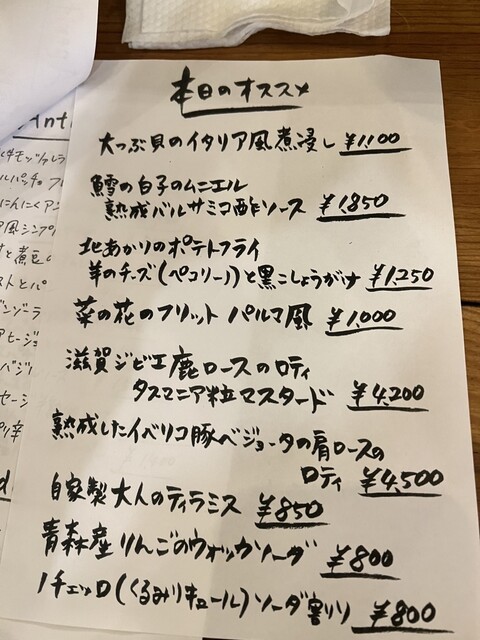 本日のオススメ
大つぶ貝のイタリア風煮浸し ¥1,100
鱈の白子のムニエル
熟成バルサミコ酢ソース ¥1,850
北あかりのポテトフライ
羊のチーズ(ペコリーノ)と黒こしょうがけ ¥1,250
菜の花のフリット パルマ風 ¥1,000
滋賀ジビエ鹿ロースのロティ
タスマニア粒マスタード ¥4,200
熟成したイベリコ豚ベジョータの肩ロースの
ロティ ¥4,500
自家製大人のティラミス ¥850
青森産りんごのウォッカソーダ ¥800
ノチェッロ(くるみリキュール)ソーダ割り ¥800
Ant